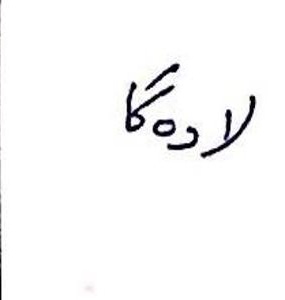 لادەگا